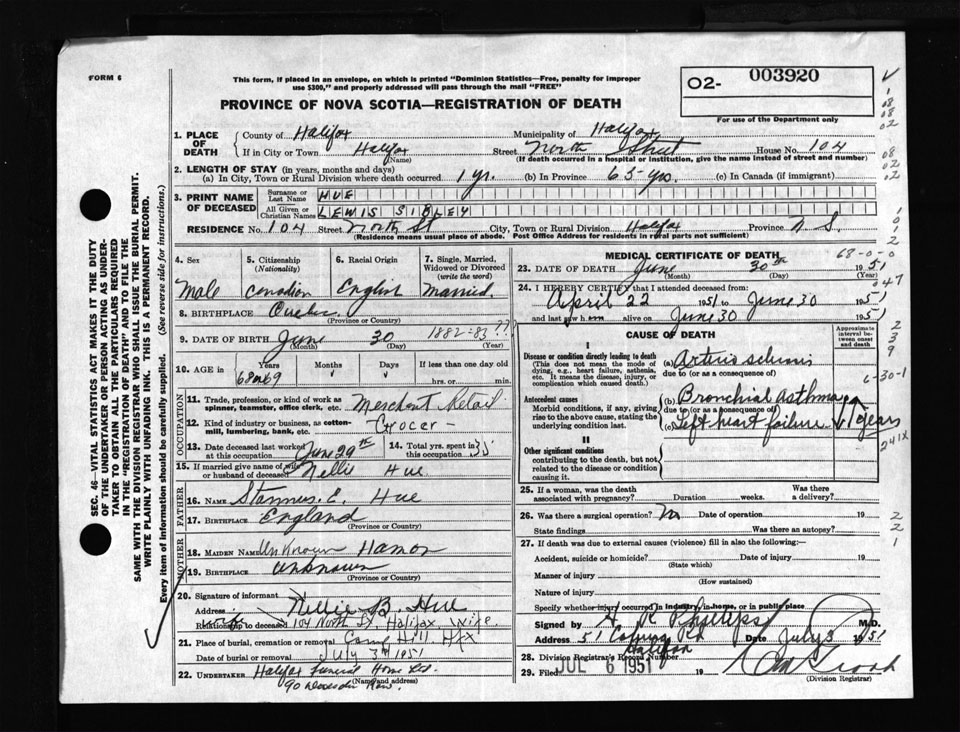 FORM 6
This form, if placed in an envelope, on which is printed "Dominion Statistics—Free, penalty for improper
use $300," and properly addressed will pass through the mail "FREE"
PROVINCE OF NOVA SCOTIA—REGISTRATION OF DEATH
O2- 003920
For use of the Department only
SEC. 46—VITAL STATISTICS ACT MAKES IT THE DUTY
OF THE UNDERTAKER OR PERSON ACTING AS UNDER-
TAKER TO OBTAIN ALL THE PARTICULARS REQUIRED
IN THE "REGISTRATION OF DEATH" AND TO FILE THE
SAME WITH THE DIVISION REGISTRAR WHO SHALL ISSUE THE BURIAL PERMIT.
WRITE PLAINLY WITH UNFADING INK. THIS IS A PERMANENT RECORD.
Every item of information should be carefully supplied. (See reverse side for instructions.)
1. PLACE OF DEATH
County of Halifax Municipality of Halifax
If in City or Town Halifax Street North Street House No. 104
(Name) (If death occurred in a hospital or institution, give the name instead of street and number)
2. LENGTH OF STAY (in years, months and days)
(a) In City, Town or Rural Division where death occurred 1 yr. (b) In Province 65 yrs. (c) In Canada (if immigrant)
3. PRINT NAME OF DECEASED
Surname or Last Name HUE
All Given or Christian Names LEWIS SIBLEY
RESIDENCE No. 104 Street North St City, Town or Rural Division Halifax Province N.S.
(Residence means usual place of abode. Post Office Address for residents in rural parts not sufficient)
4. Sex Male
5. Citizenship (Nationality) Canadian
6. Racial Origin English
7. Single, Married, Widowed or Divorced (write the word) Married.
8. BIRTHPLACE Quebec
(Province or Country)
9. DATE OF BIRTH June 30 1882-83??
(Month) (Day) (Year)
10. AGE in Years 68 or 69 Months Days If less than one day
hrs. or min.
OCCUPATION
11. Trade, profession, or kind of work as
spinner, teamster, office clerk, etc. Merchant Retail
12. Kind of industry or business, as cotton-
mill, lumbering, bank, etc. Grocer -
13. Date deceased last worked at this occupation June 29th
14. Total yrs. spent in this occupation 35
15. If married give name of wife or husband of deceased Nellie Hue
FATHER
16. NAME E. Hue
17. BIRTHPLACE England
(Province or Country)
MOTHER
18. MAIDEN NAME Unknown Hamon
19. BIRTHPLACE unknown
(Province or Country)
20. Signature of informant Nellie B. Hue
Address
Relationship to deceased 104 North St Halifax, wife
21. Place of burial, cremation or removal Camp Hill, Hfx
Date of burial or removal July 3rd 1951
22. UNDERTAKER Halifax Funeral Home Ltd.
(Name and address)
90 Row.
MEDICAL CERTIFICATE OF DEATH 68-0-0
23. DATE OF DEATH June 30th 1951
(Month) (Day) (Year)
24. I HEREBY CERTIFY that I attended deceased from:
April 22 1951 to June 30 1951
and last saw him alive on June 30 1951
CAUSE OF DEATH
Approximate interval between onset and death
I
Disease or condition directly leading to death
(This does not mean the mode of
dying, e.g., heart failure, asthenia,
etc. It means the disease, injury, or
complication which caused death.)
(a)
due to (or as a consequence of)
Antecedent causes
Morbid conditions, if any, giving
rise to the above cause, stating the
underlying condition last.
(b) Bronchial Asthma
due to (or as a consequence of)
(c) Left heart failure years
II
Other significant conditions
contributing to the death, but not
related to the disease or condition
causing it.
6-30-1
241X
25. If a woman, was the death
associated with pregnancy? Duration weeks. Was there a delivery?
26. Was there a surgical operation? No Date of operation 19
State findings Was there an autopsy?
27. If death was due to external causes (violence) fill in also the following:—
Accident, suicide or homicide? Date of injury 19
(State which)
Manner of injury
(How sustained)
Nature of injury
Specify whether injury occurred in industry, in home, or in public place
Signed by H. R Phillips M.D.
Address 51 Coburg Rd Date July 3 1951
Halifax
28. Division Registrar's Record Number
29. Filed JUL 6 1951 19
(Division Registrar)